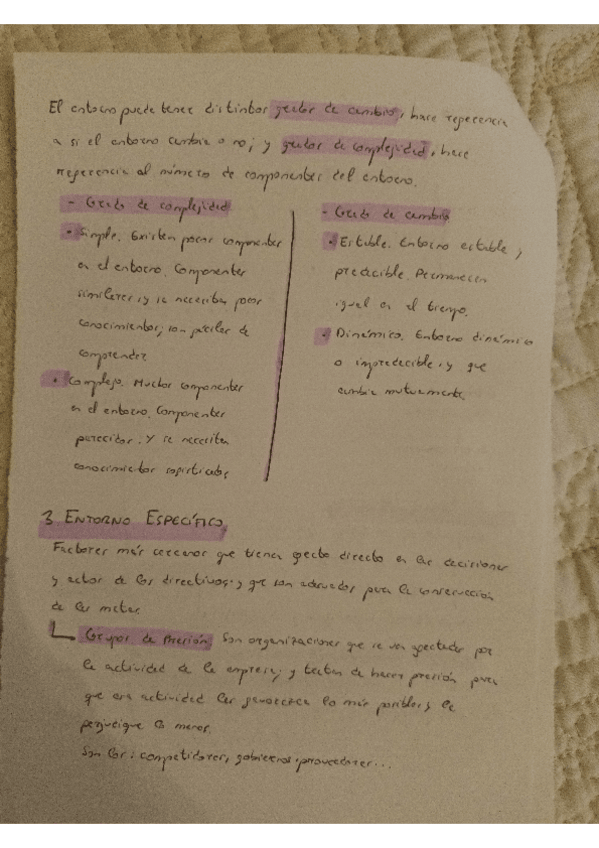 El entorno puede tener distintos grados de cambio, hace referencia
a si el entorno cambia o no; y grados de complejidad, hace
referencia al número de componentes del entorno.
- Grado de complejidad
• Simple. Existen pocos componentes
en el entorno. Componentes
similares y se necesitan pocos
conocimientos; son fáciles de
comprender
• Complejo. Muchos componentes
en el entorno. Componentes
parecidos. Y se necesitan
conocimientos sofisticados
- Grado de cambio
• Estable. Entorno estable y
predecible. Permanecen
igual en el tiempo.
• Dinámico. Entorno dinámico
o impredecible. y que
cambia mutuamente.
3. ENTORNO ESPECÍFICO
Factores más cercanos que tienen efecto directo en las decisiones
y actos de los directivos. y que son adecuados para la consecución
de las metas.
Grupos de Presión. Son organizaciones que se ven afectadas por
la actividad de la empresa; y tratan de hacer presión para
que esa actividad les favorezca lo más posible; y le
perjudique lo menos.
Son los: competidores, gobiernos, proveedores...